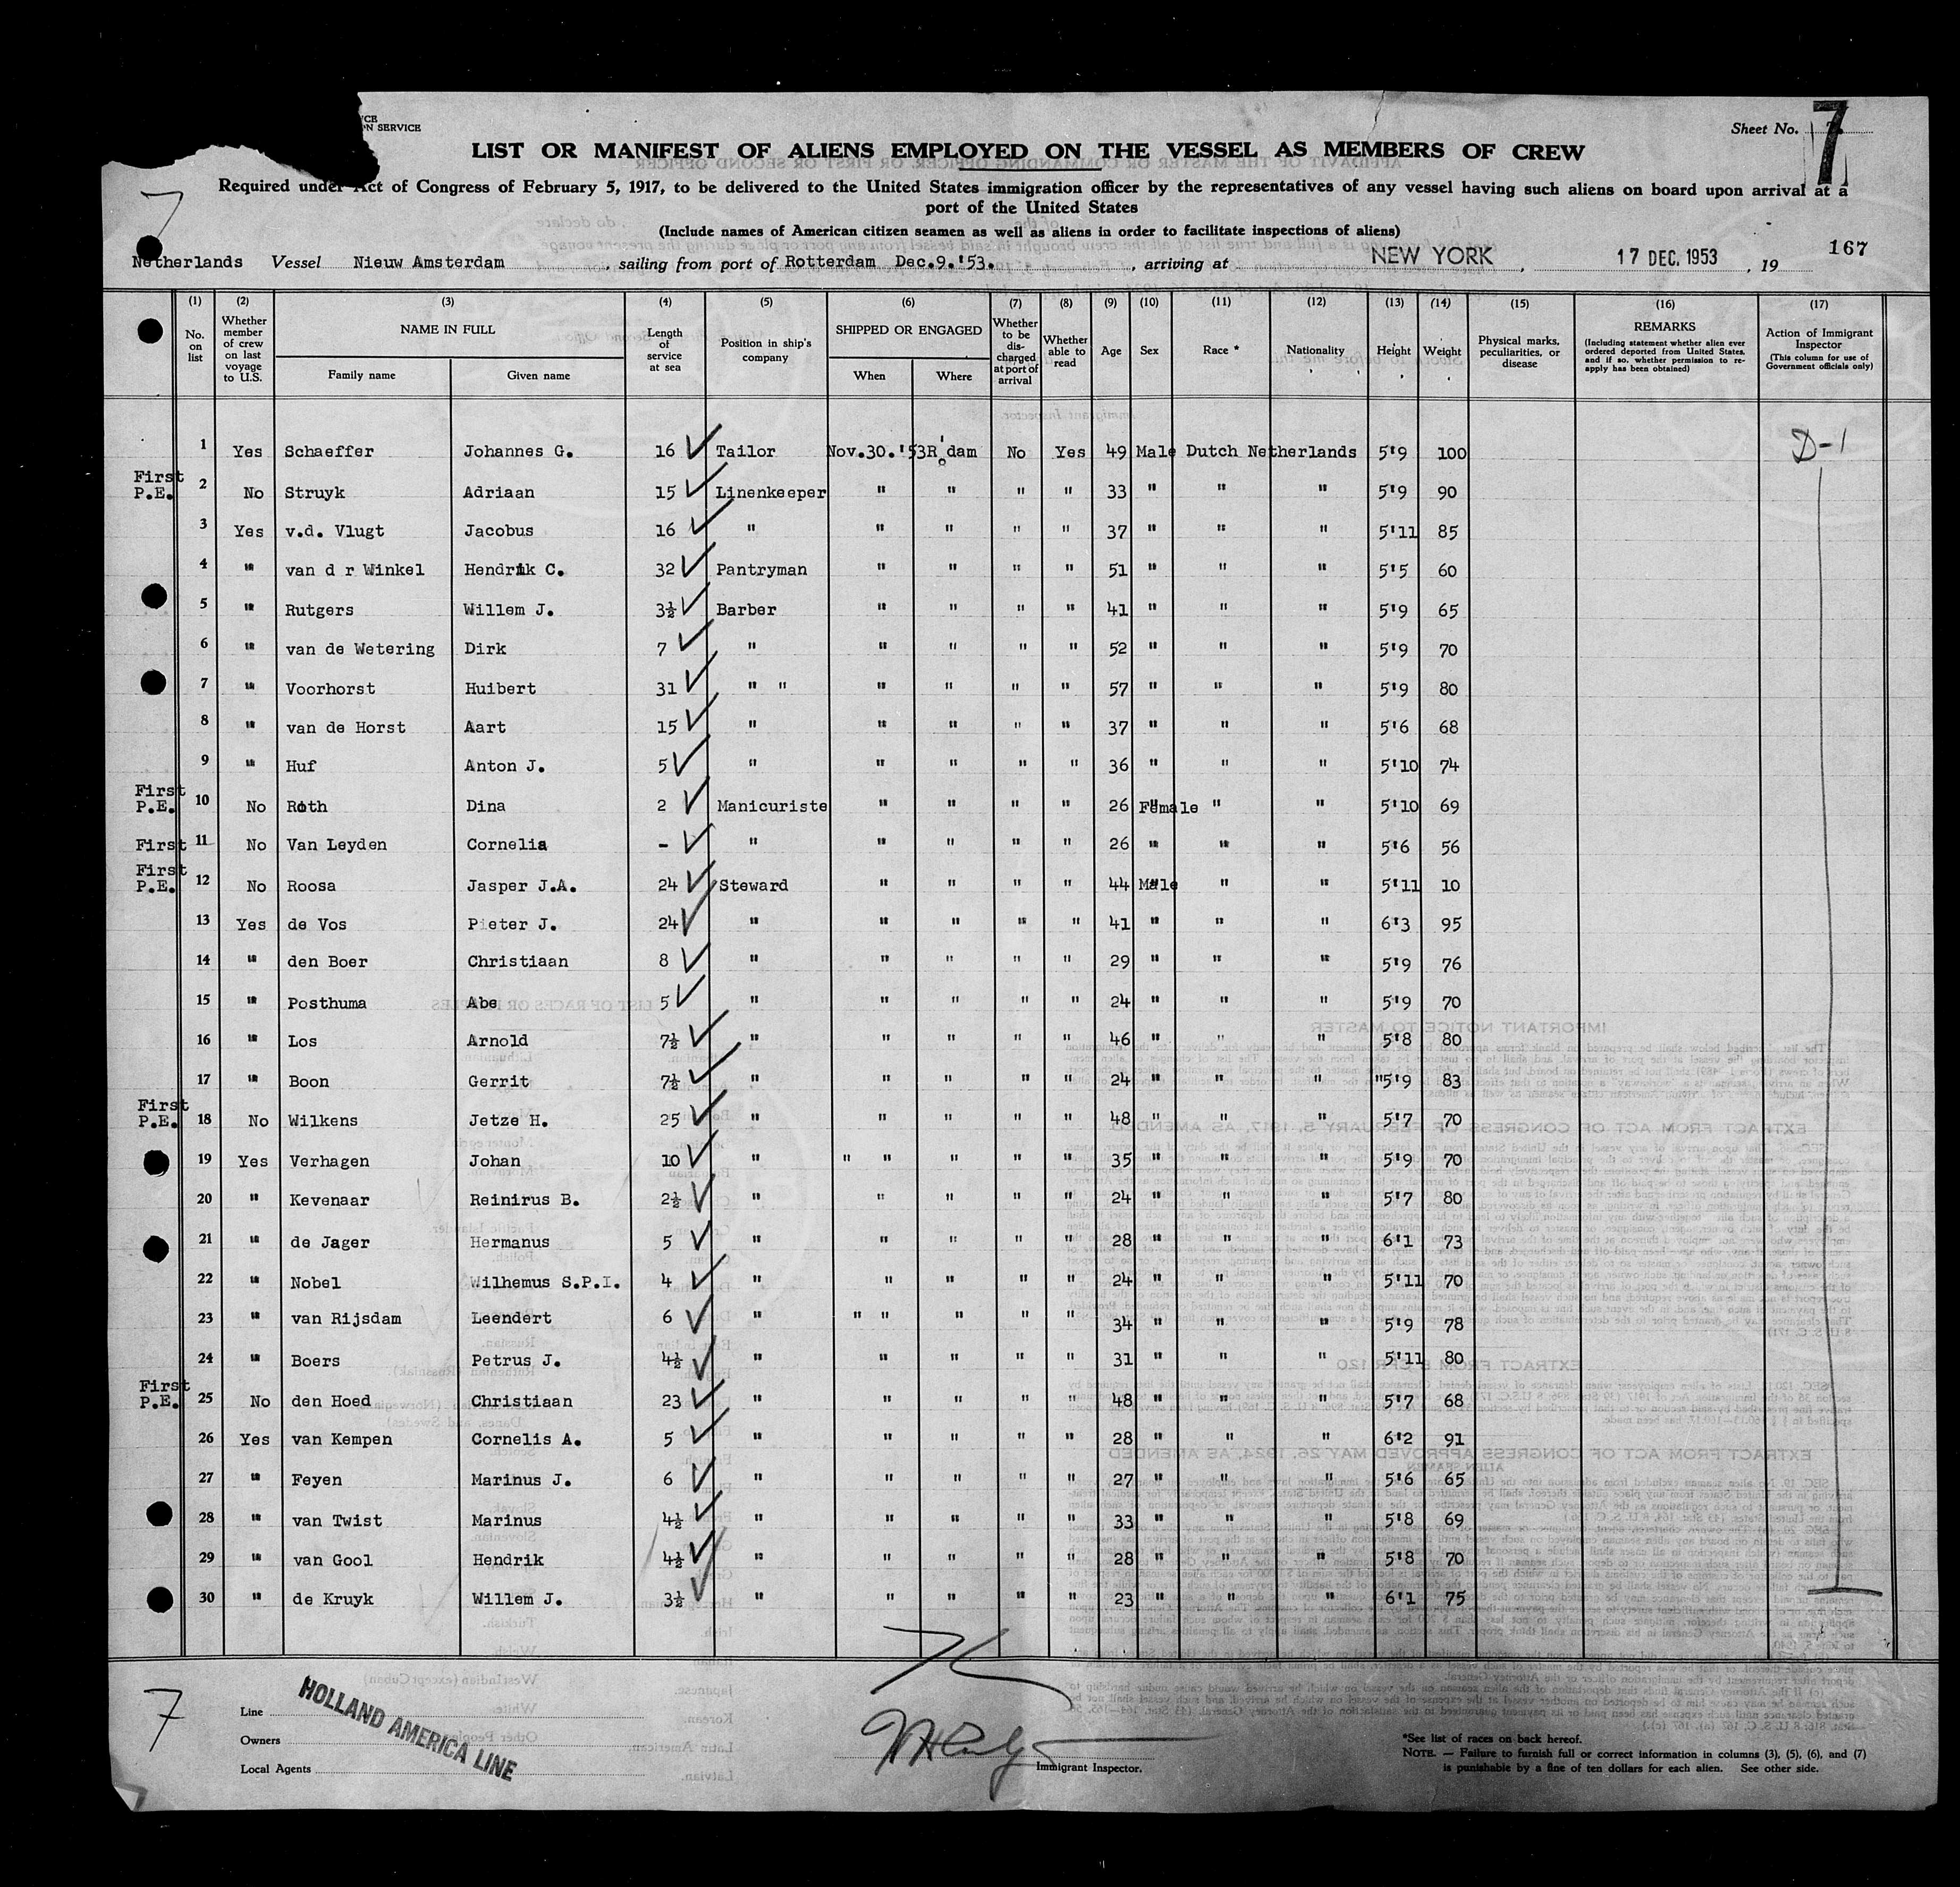 CE
N SERVICE
Sheet No. 7
LIST OR MANIFEST OF ALIENS EMPLOYED ON THE VESSEL AS MEMBERS OF CREW
Required under Act of Congress of February 5, 1917, to be delivered to the United States immigration officer by the representatives of any vessel having such aliens on board upon arrival at a
port of the United States
(Include names of American citizen seamen as well as aliens in order to facilitate inspections of aliens)
7
167
Netherlands Vessel Nieuw Amsterdam, sailing from port of Rotterdam Dec.9.'53., arriving at NEW YORK, 17 DEC. 1953, 19
(1) (2) (3) (4) (5) (6) (7) (8) (9) (10) (11) (12) (13) (14) (15) (16) (17)
No. on list
Whether member of crew on last voyage to U.S.
NAME IN FULL
Family name
Given name
Length of service at sea
Position in ship's company
SHIPPED OR ENGAGED
When
Where
Whether to be discharged at port of arrival
Whether able to read
Age
Sex
Race *
Nationality
Height
Weight
Physical marks, peculiarities, or disease
REMARKS
(Including statement whether alien ever ordered deported from United States, and if so, whether permission to re-apply has been obtained)
Action of Immigrant Inspector
(This column for use of Government officials only)
1 Yes Schaeffer Johannes G. 16 Tailor Nov.30.'53 R'dam No Yes 49 Male Dutch Netherlands 5'9 100 D-1
First P.E. 2 No Struyk Adriaan 15 Linenkeeper " " " " 33 " " " 5'9 90
3 Yes v.d. Vlugt Jacobus 16 " " " " " 37 " " " 5'11 85
4 " van d r Winkel Hendrik C. 32 Pantryman " " " " 51 " " " 5'5 60
5 " Rutgers Willem J. 3½ Barber " " " " 41 " " " 5'9 65
6 " van de Wetering Dirk 7 " " " " " 52 " " " 5'9 70
7 " Voorhorst Huibert 31 " " " " " " 57 " " " 5'9 80
8 " van de Horst Aart 15 " " " " " 37 " " " 5'6 68
9 " Huf Anton J. 5 " " " " " 36 " " " 5'10 74
First P.E. 10 No Roth Dina 2 Manicuriste " " " " 26 Female " " 5'10 69
First 11 No Van Leyden Cornelia - " " " " " 26 " " " 5'6 56
First P.E. 12 No Roosa Jasper J.A. 24 Steward " " " " 44 Male " " 5'11 10
13 Yes de Vos Pieter J. 24 " " " " " 41 " " " 6'3 95
14 " den Boer Christiaan 8 " " " " " 29 " " " 5'9 76
15 " Posthuma Abe 5 " " " " " 24 " " " 5'9 70
16 " Los Arnold 7½ " " " " " 46 " " " 5'8 80
17 " Boon Gerrit 7½ " " " " " 24 " " " "5'9 83
First P.E. 18 No Wilkens Jetze H. 25 " " " " " 48 " " " 5'7 70
19 Yes Verhagen Johan 10 " " " " " " 35 " " " 5'9 70
20 " Kevenaar Reinirus B. 2½ " " " " " 24 " " " 5'7 80
21 " de Jager Hermanus 5 " " " " " 28 " " " 6'1 73
22 " Nobel Wilhemus S.P.I. 4 " " " " " 24 " " " 5'11 70
23 " van Rijsdam Leendert 6 " " " " " " 34 " " " 5'9 78
24 " Boers Petrus J. 4½ " " " " " 31 " " " 5'11 80
First P.E. 25 No den Hoed Christiaan 23 " " " " " 48 " " " 5'7 68
26 Yes van Kempen Cornelis A. 5 " " " " " 28 " " " 6'2 91
27 " Feyen Marinus J. 6 " " " " " 27 " " " 5'6 65
28 " van Twist Marinus 4½ " " " " " 33 " " " 5'8 69
29 " van Gool Hendrik 4½ " " " " " 28 " " " 5'8 70
30 " de Kruyk Willem J. 3½ " " " " " 23 " " " 6'1 75
7
Line
Owners
Local Agents
HOLLAND AMERICA LINE
Immigrant Inspector.
*See list of races on back hereof.
NOTE. — Failure to furnish full or correct information in columns (3), (5), (6), and (7)
is punishable by a fine of ten dollars for each alien. See other side.